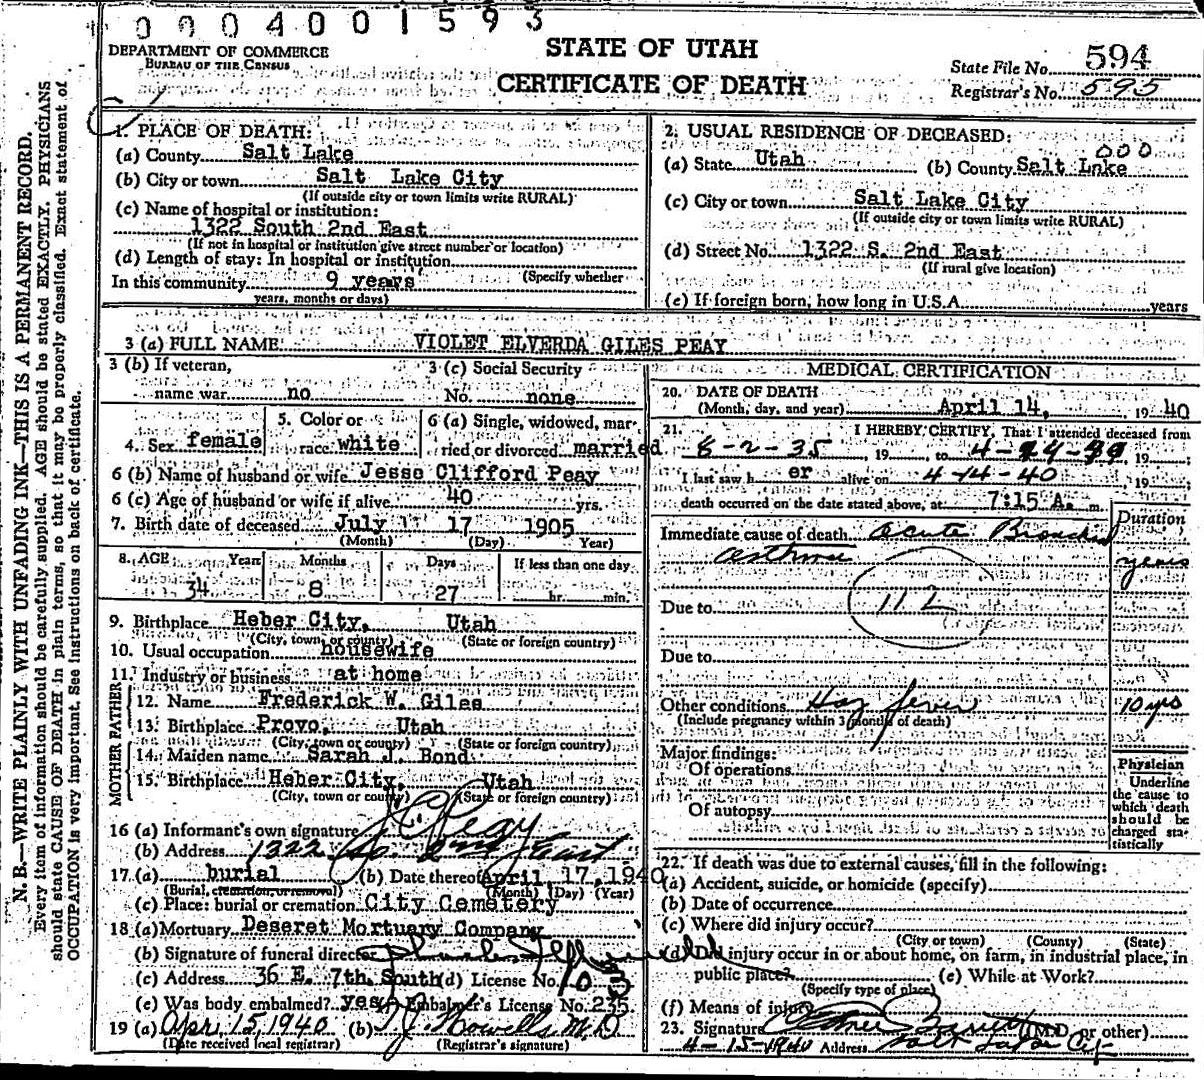 0004001593
DEPARTMENT OF COMMERCE
BUREAU OF THE CENSUS
STATE OF UTAH
CERTIFICATE OF DEATH
State File No. 594
Registrar's No. 595
N. B.—WRITE PLAINLY WITH UNFADING INK—THIS IS A PERMANENT RECORD.
Every item of information should be carefully supplied. AGE should be stated EXACTLY. PHYSICIANS
should state CAUSE OF DEATH in plain terms, so that it may be properly classified. Exact statement of
OCCUPATION is very important. See instructions on back of certificate.
1. PLACE OF DEATH:
(a) County Salt Lake
(b) City or town Salt Lake City
(If outside city or town limits write RURAL)
(c) Name of hospital or institution:
1322 South 2nd East
(If not in hospital or institution give street number or location)
(d) Length of stay: In hospital or institution
(Specify whether
In this community 9 years
years, months or days)
2. USUAL RESIDENCE OF DECEASED:
000
(a) State Utah (b) County Salt Lake
(c) City or town Salt Lake City
(If outside city or town limits write RURAL)
(d) Street No. 1322 S. 2nd East
(If rural give location)
(e) If foreign born, how long in U.S.A. years
3 (a) FULL NAME VIOLET ELVERDA GILES PEAY
3 (b) If veteran,
name war no
3 (c) Social Security
No. none
4. Sex female
5. Color or
race white
6 (a) Single, widowed, mar-
ried or divorced married
6 (b) Name of husband or wife Jesse Clifford Peay
6 (c) Age of husband or wife if alive 40 yrs.
7. Birth date of deceased July 17 1905
(Month) (Day) Year)
8. AGE Years Months Days If less than one day
34 8 27 hr. min.
9. Birthplace Heber City, Utah
(City, town, or county) (State or foreign country)
10. Usual occupation housewife
11. Industry or business at home
FATHER
12. Name Frederick W. Giles
13. Birthplace Provo, Utah
(City, town or county) (State or foreign country)
MOTHER
14. Maiden name Sarah J. Bond
15. Birthplace Heber City, Utah
(City, town or county) (State or foreign country)
16 (a) Informant's own signature J C Peay
(b) Address 1322 So. 2nd East
17. (a) burial (b) Date thereof April 17, 1940
(Burial, cremation, or removal) (Month) (Day) (Year)
(c) Place: burial or cremation City Cemetery
18 (a) Mortuary Deseret Mortuary Company
(b) Signature of funeral director
(c) Address 36 E. 7th South (d) License No. 103
(e) Was body embalmed? yes Embalmer's License No. 235
19 (a) Apr. 15, 1940 (b) M.D.
(Date received local registrar) (Registrar's signature)
MEDICAL CERTIFICATION
20. DATE OF DEATH
(Month, day, and year) April 14, 1940
21. I HEREBY CERTIFY, That I attended deceased from
8-2-35, 19 , to 4-14-, 19 ;
I last saw her alive on 4-14-40 19 ;
death occurred on the date stated above, at 7:15 A. m.
Duration
Immediate cause of death acute Bronchial
asthma years
Due to 112
Due to
Other conditions Hay fever 10 yrs
(Include pregnancy within 3 months of death)
Major findings:
Of operations
Of autopsy
Physician
Underline
the cause to
which death
should be
charged sta-
tistically
22. If death was due to external causes, fill in the following:
(a) Accident, suicide, or homicide (specify)
(b) Date of occurrence
(c) Where did injury occur?
(City or town) (County) (State)
(d) Did injury occur in or about home, on farm, in industrial place, in
public place? (e) While at Work?
(Specify type of place)
(f) Means of injury
23. Signature (M.D. or other)
4-15-1940 Address Salt Lake City